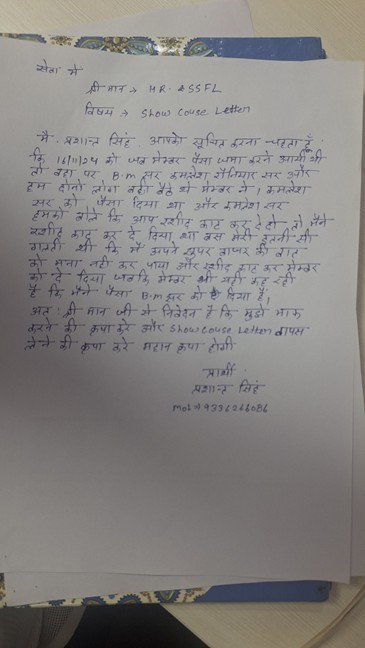 सेवा में
श्री मान → HR. SSFL
विषय → Show Couse Letter
मै. प्रशान्त सिंह. आपको सूचित करना चहता हूँ
कि 16/11/24 को जब मेम्बर पैसा जमा करने आयी थी
तो वहा पर B.m सर कमलेश सर और
हम दोनो लोग वही बैठे थे मेम्बर ने। कमलेश
सर को पैसा दिया था और कमलेश सर
हमको बोले कि आप रशीद काट कर दे दो तो मैने
रशीद काट कर दे दिया था बस मेरी इतनी सी
गलती थी कि मैं अपने की बात
को मना नही कर पाया और रशीद काट कर मेम्बर
को दे दिया जबकि मेम्बर भी यही कह रही
है कि मैने पैसा B.m सर को दिया है।
अतः श्री मान जी से निवेदन है कि मुझे माफ
करने की कृपा करे और Show Couse Letter वापस
लेने की कृपा करे महान कृपा होगी
प्रार्थी
प्रशान्त सिंह